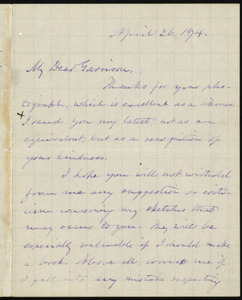 April 26, 1874.
My Dear Garrison,
Thanks for your pho-
tograph, which is excellent as a likeness.
I send you my latest, not as an
equivalent, but as a recognition of
your kindness.
I hope you will not withhold
from me any suggestion or criti-
cism concerning my sketches that
may occur to you. They will be
especially valuable if I should make
a book. Above all correct me if
I fall into any mistake respecting